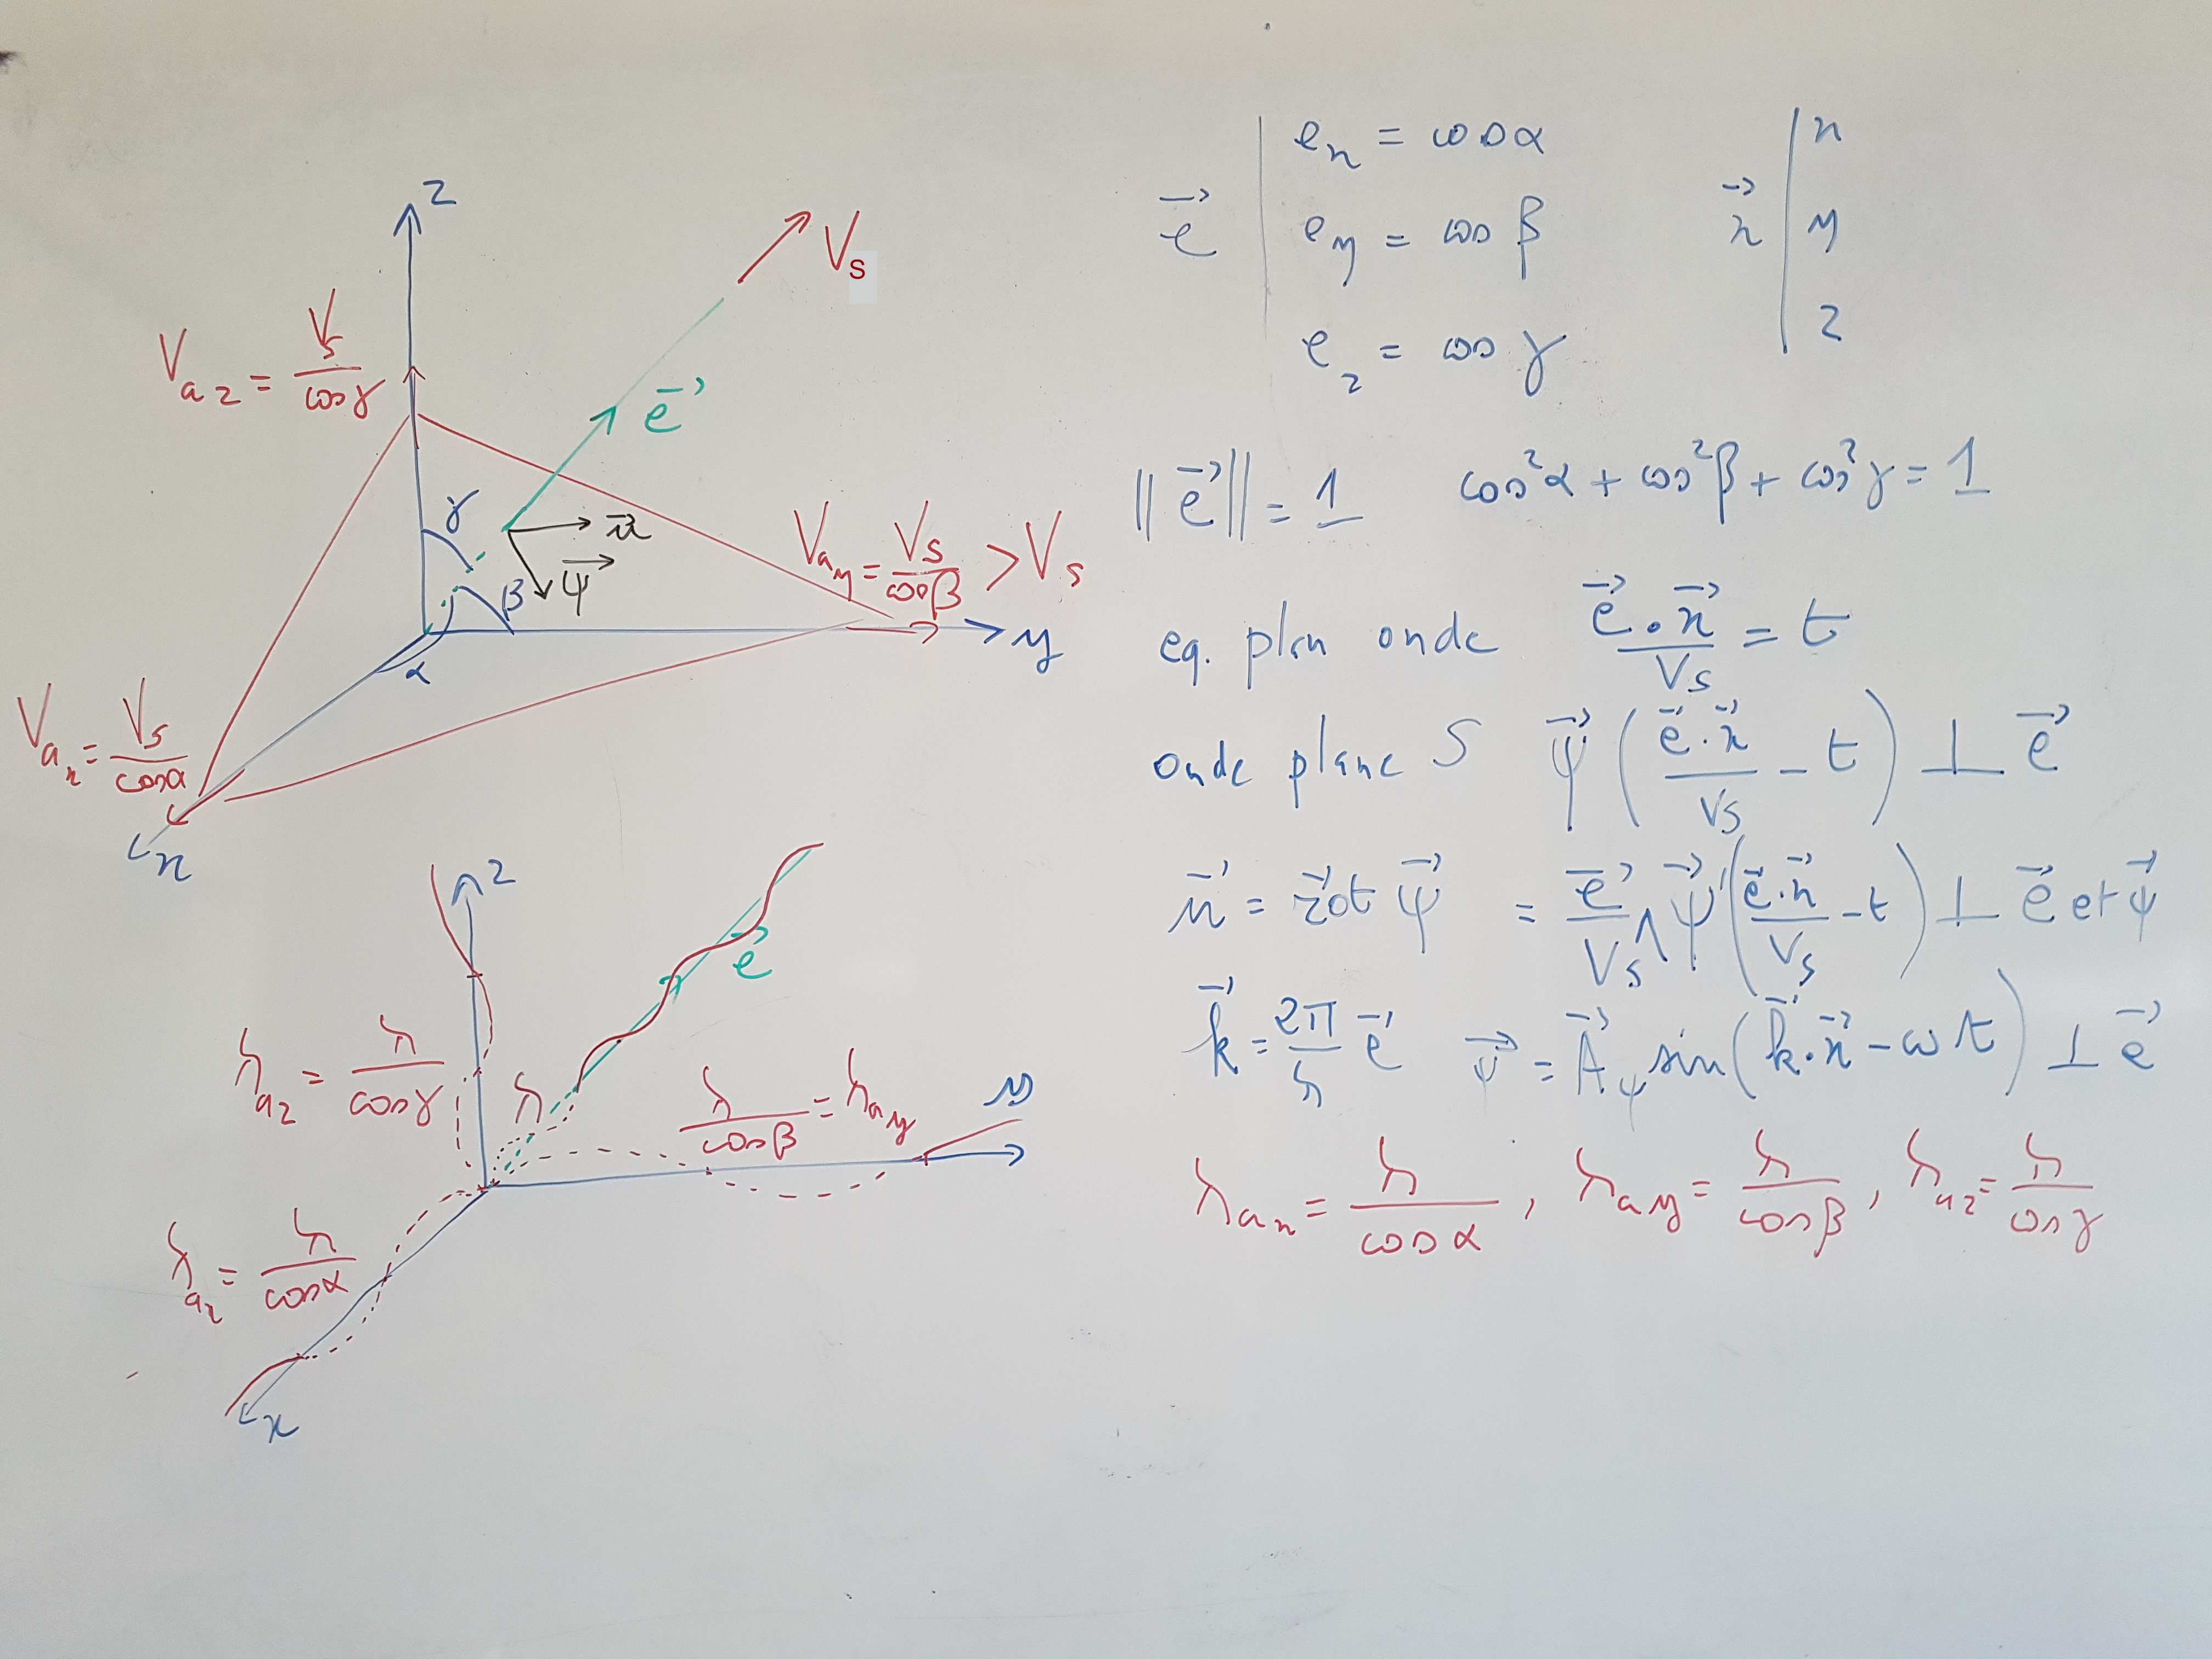 z
V⃗s
V_az = Vs / cos γ
e⃗
γ
u⃗
ψ⃗
β
α
V_ay = Vs / cos β > Vs
y
V_ax = Vs / cos α
x
e⃗ | e_x = cos α
e_y = cos β
e_z = cos γ
x⃗ | x
y
z
||e⃗|| = 1 cos²α + cos²β + cos²γ = 1
eq. plan onde e⃗·x⃗ / Vs = t
onde plane S ψ⃗ ( e⃗·x⃗ / Vs − t ) ⊥ e⃗
u⃗ = rot⃗ ψ⃗ = e⃗ / Vs ∧ ψ⃗' ( e⃗·x⃗ / Vs − t ) ⊥ e⃗ et ψ⃗
k⃗ = 2π / λ e⃗ ψ⃗ = A⃗_ψ sin( k⃗·x⃗ − ωt ) ⊥ e⃗
λ_ax = λ / cos α , λ_ay = λ / cos β , λ_az = λ / cos γ
z
e⃗
λ_az = λ / cos γ
λ
λ / cos β = λ_ay
y
λ_ax = λ / cos α
x